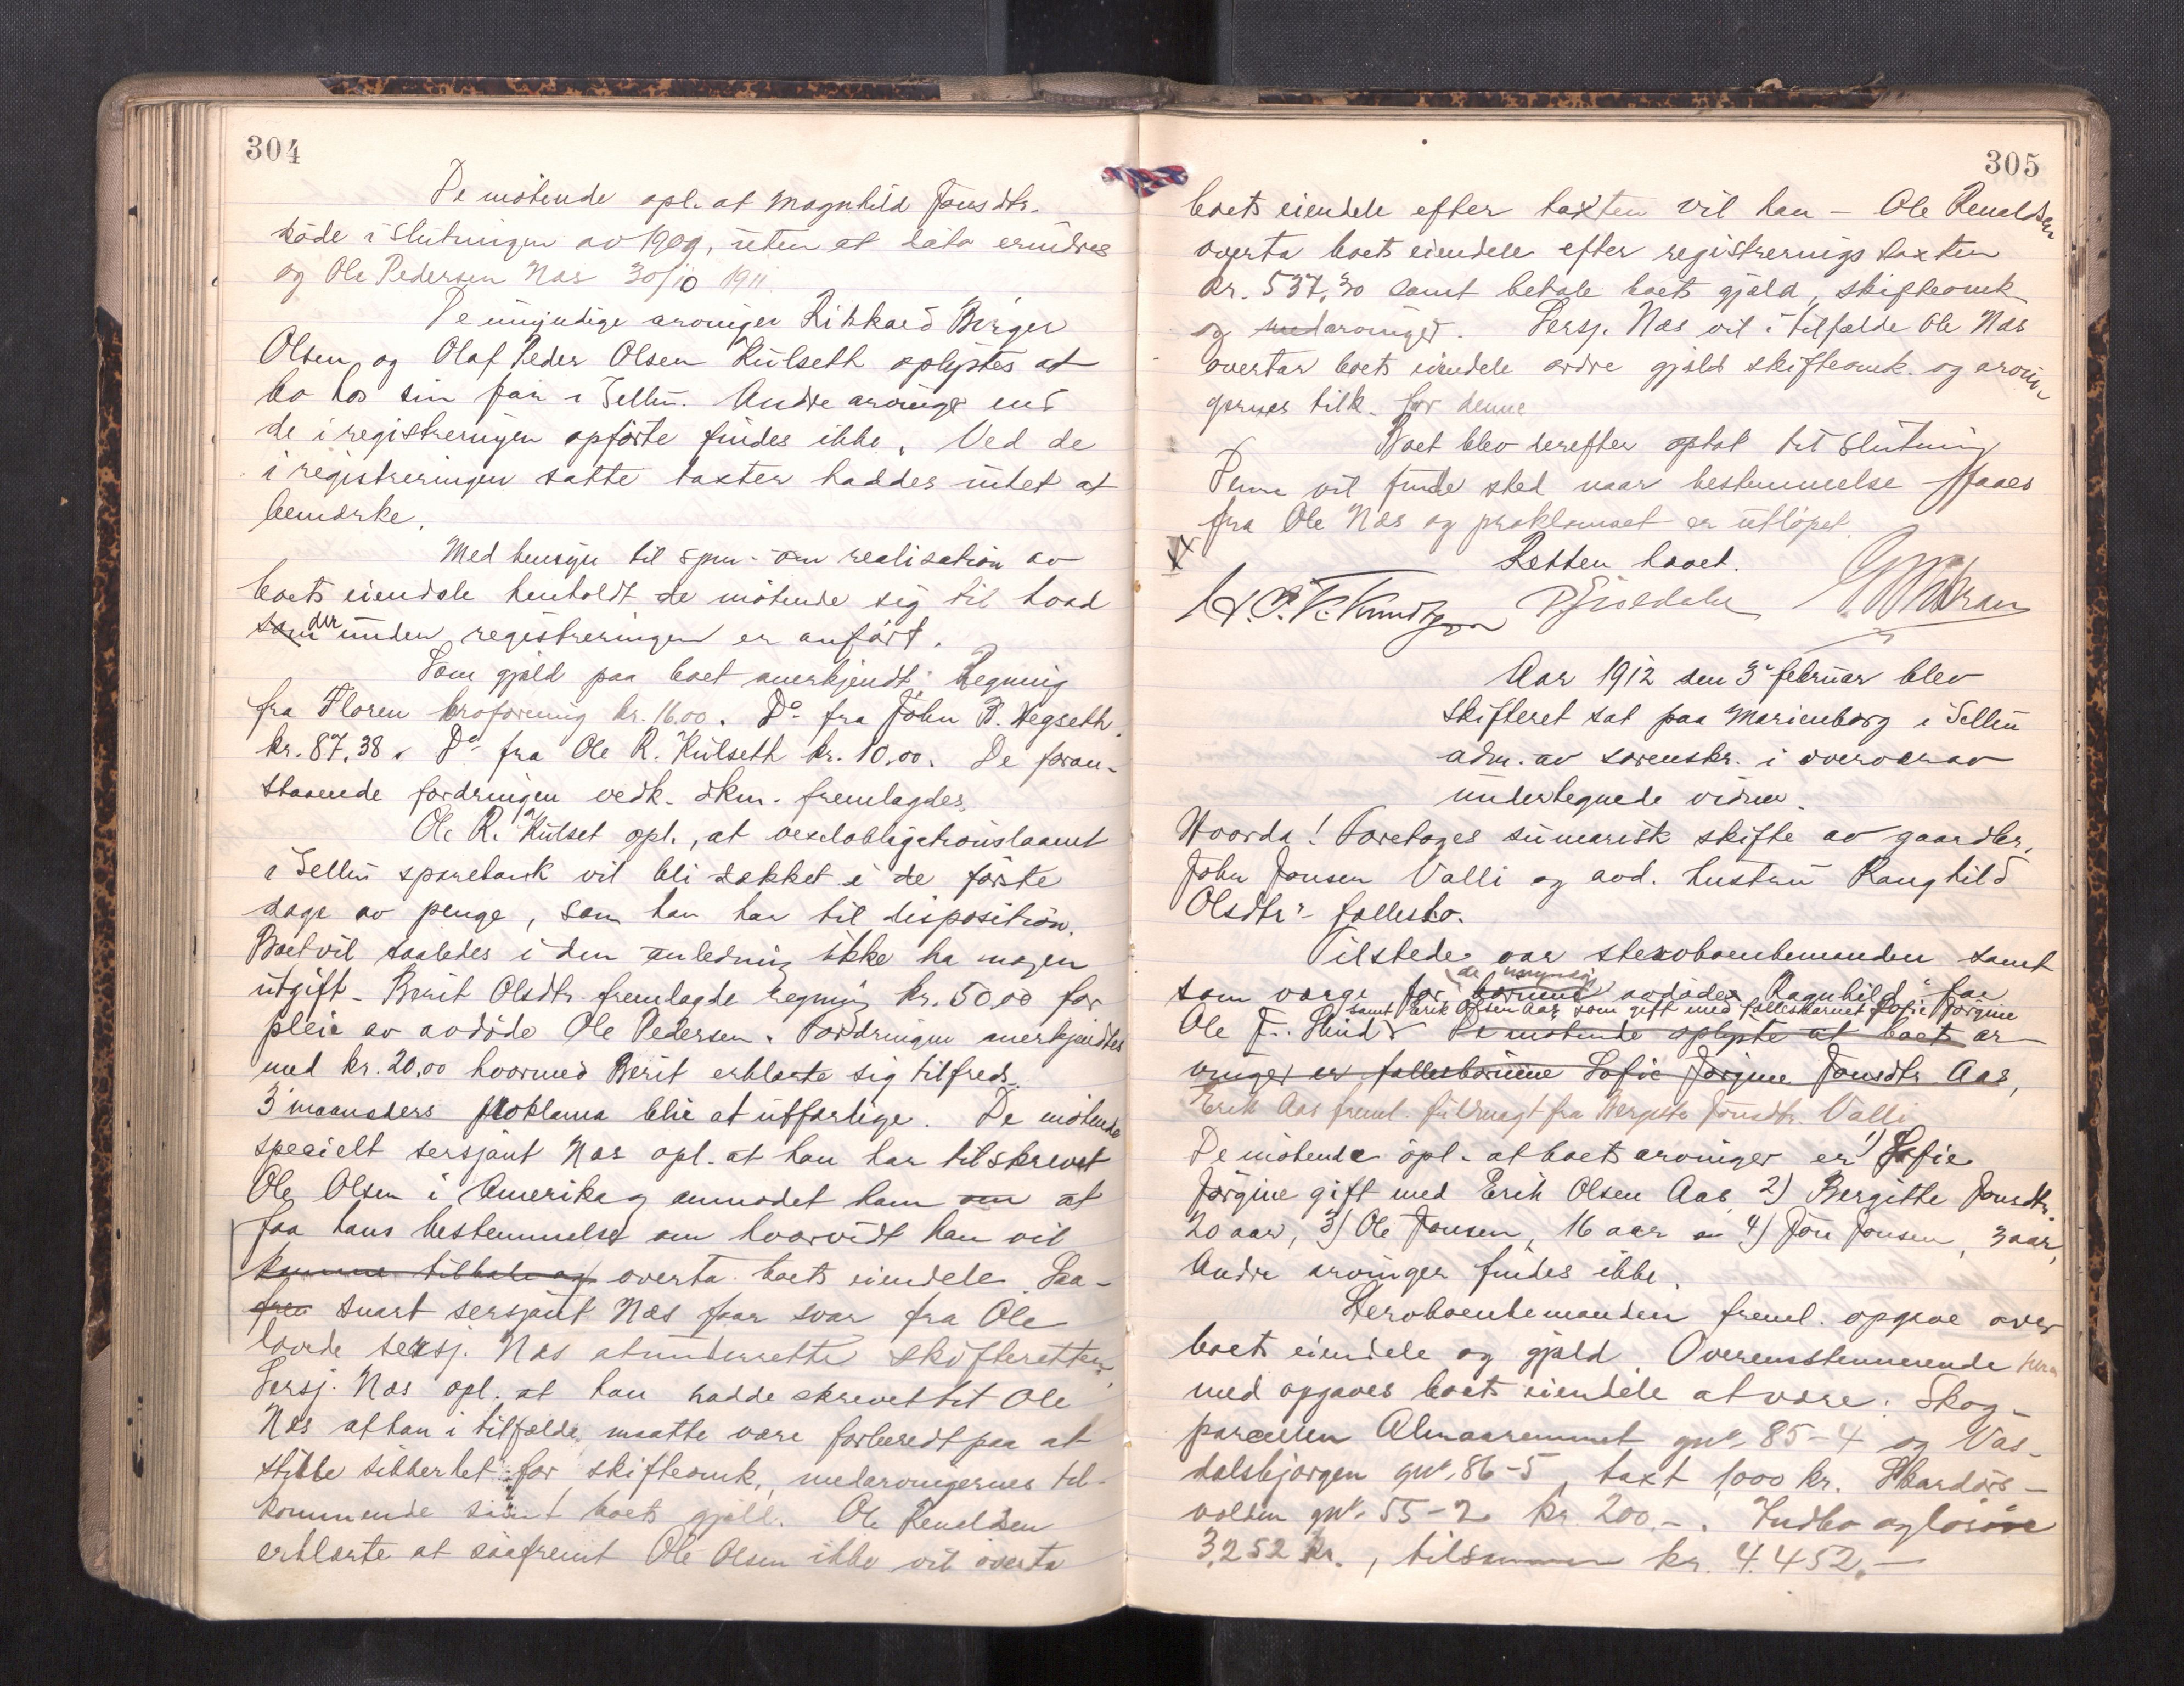 304
De mötende opl. at Magnhild Jonsdtr.
döde i slutningen av 1909, uten at dato erindres
og Ole Pedersen Næs 30/10 1911.
De umyndige arvinger Rikkard Birger
Olsen og Olaf Peder Olsen Kulseth oplystes at
bo hos sin far i Selbu. Andre arvinger end
de i registreringen opförte findes ikke. Ved de
i registreringen satte taxter haddes intet at
bemærke.
Med hensyn til spm. om realisation av
boets eiendele henholdt de mötende sig til hvad
som der under registreringen er anfört.
Som gjæld paa boet anerkjendt: Regning
fra Floren broforening kr. 16.00. Do fra John B. Hegseth
kr. 87,38. Do fra Ole R. Kulseth kr. 10,00. De foran-
staaende fordringer vedk. dkm. fremlagdes.
Ole R. Kulset opl., at vexelobligationslaanet
i Selbu sparebank vil bli dækket i de förste
dage av penge, som han har til disposition.
Boet vil saaledes i den anledning ikke ha nogen
utgift. Berit Olsdtr. fremlagde regning kr. 50,00 for
pleie av avdöde Ole Pedersen. Fordringen anerkjendtes
med kr. 20,00 hvormed Berit erklærte sig tilfreds.
3 maaneders proklama blir at utfærdige. De mötende
specielt sersjant Næs opl. at han har tilskrevet
Ole Olsen i Amerika og anmodet ham om at
faa hans bestemmelse om hvorvidt han vil
komme tilbake og overta boets eiendele. Saa-
snart sersjant Næs faar svar fra Ole
lovde sersj. Næs at underrette skifteretten.
Sersj. Næs opl. at han hadde skrevet til Ole
Næs at han i tilfælde maatte være forberedt paa at
stille sikkerhet for skifteomk., medarvingernes til-
kommende samt boets gjæld. Ole Renaldsen
erklærte at saafremt Ole Olsen ikke vil overta
305
boets eiendele efter taxten vil han - Ole Renaldsen
overta boets eiendele efter registrerings taxten
kr. 537,30 samt betale boets gjæld, skifteomk
og medarvinger. Sersj. Næs vil i tilfælde Ole Næs
overtar boets eiendele ordre gjæld skifteomk. og arvin-
gernes tilk. for denne
Boet blev derefter optat til slutning
Denne vil finde sted naar bestemmelse faaes
fra Ole Næs og proklamaet er utlöpet.
Retten hævet.
Aar 1912 den 3. februar blev
skifteret sat paa Marienborg i Selbu
adm. av sorenskr. i overvær av
undertegnede vidner.
Hvorda! Foretoges sumarisk skifte av gaardbr.
John Jonsen Valli og avd. hustru Ragnhild
Olsdtrs fællesbo.
Tilstede var stervboenkemanden samt
som værge for de umyndige börnene avdöde Ragnhilds far
samt Erik Olsen Aas som gift med fællesbarnet Sofie Jörgine
Ole J. Slind. De mötende oplyste at boets ar-
vinger er fællesbörnene Sofie Jörgine Jonsdtr Aas,
Erik Aas freml. fuldmagt fra Bergitte Jonsdtr. Valli
De mötende opl. at boets arvinger er 1) Sofie
Jörgine gift med Erik Olsen Aas, 2) Bergitte Jonsdtr.
20 aar, 3) Ole Jonsen, 16 aar 4) Jon Jonsen, 3 aar,
Andre arvinger findes ikke.
Stervboenkemanden freml. opgave over
boets eiendele og gjæld. Overensstemmende herm
med opgaves boets eiendele at være: Skog-
parcellen Almaaremmet gnr. 85-4 og Vas-
dalsbjørgen gnr. 86-5, taxt 1,000 kr. Skardörs-
volden gnr. 55-2 kr. 200.-. Indbo og lösöre
3,252 kr., tilsammen kr. 4.452,-